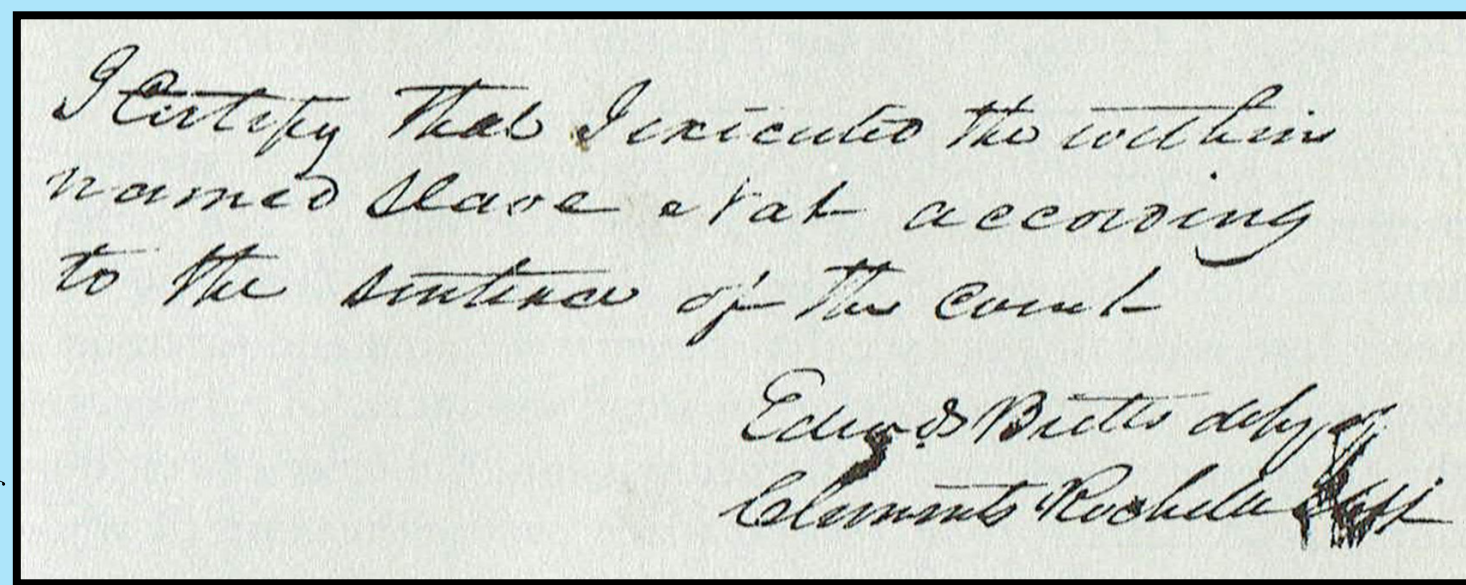 I Certify that I executed the within
named slave Nat according
to the sentence of the Court
Edwards Butts depy of
Clements Rochelle Shff